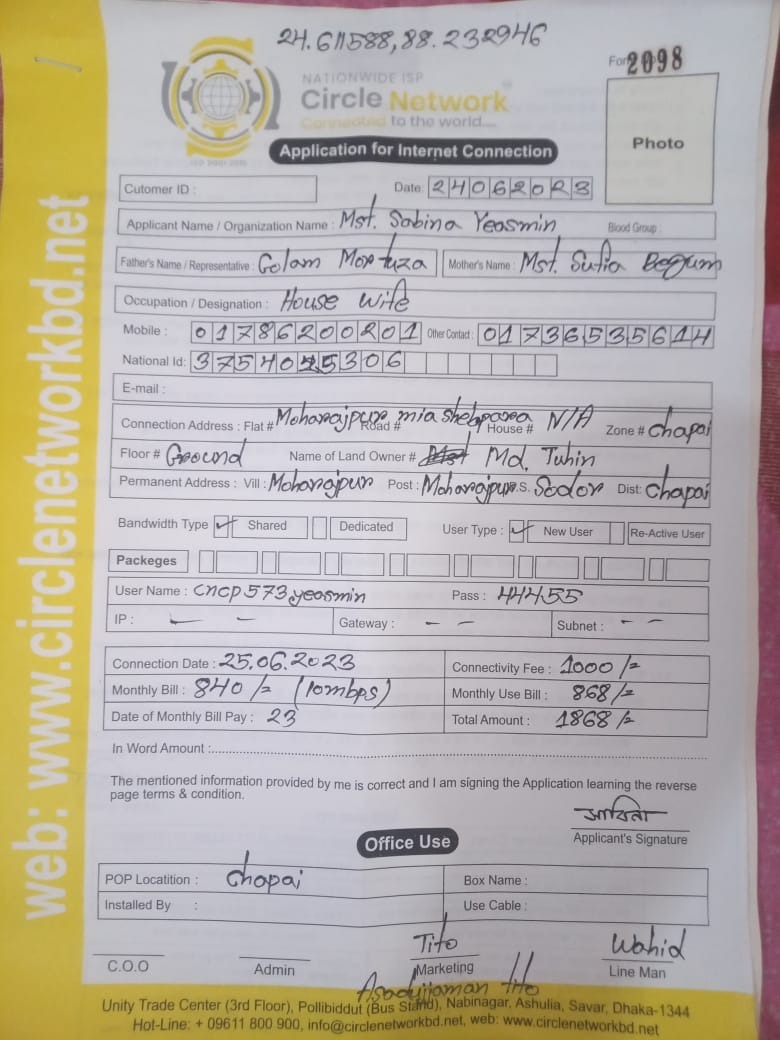 24.611588,88.232946
Form 2098
NATIONWIDE ISP
Circle Network
Connected to the world....
ISO 9001:2015
Photo
Application for Internet Connection
Cutomer ID :
Date: 24062023
Applicant Name / Organization Name : Mst. Sabina Yeasmin Blood Group :
Father's Name / Representative : Golam Mortuza Mother's Name : Mst. Sufia Begum
Occupation / Designation : House wife
Mobile : 01786200201 Other Contact : 01736535614
National Id: 375405306
E-mail :
Connection Address : Flat # Moharajpur mia Road # House # N/A Zone # Chapai
Floor # Ground Name of Land Owner # Md. Tuhin
Permanent Address : Vill : Moharajpur Post : Moharajpur P.S. Sodor Dist: Chapai
Bandwidth Type ✓ Shared Dedicated User Type : ✓ New User Re-Active User
Packeges
User Name : cncp573yeasmin Pass : 44455
IP : — - Gateway : - - Subnet : - -
Connection Date : 25.06.2023 Connectivity Fee : 1000/=
Monthly Bill : 840/= (10mbps) Monthly Use Bill : 868/=
Date of Monthly Bill Pay : 23 Total Amount : 1868/=
In Word Amount :
The mentioned information provided by me is correct and I am signing the Application learning the reverse
page terms & condition.
সাবিনা
Applicant's Signature
Office Use
POP Locatition : Chapai Box Name :
Installed By : Use Cable :
Tito Wahid
C.O.O Admin Marketing Line Man
Asadujjaman Tito
Unity Trade Center (3rd Floor), Pollibiddut (Bus Stand), Nabinagar, Ashulia, Savar, Dhaka-1344
Hot-Line: + 09611 800 900, info@circlenetworkbd.net, web: www.circlenetworkbd.net
web: www.circlenetworkbd.net